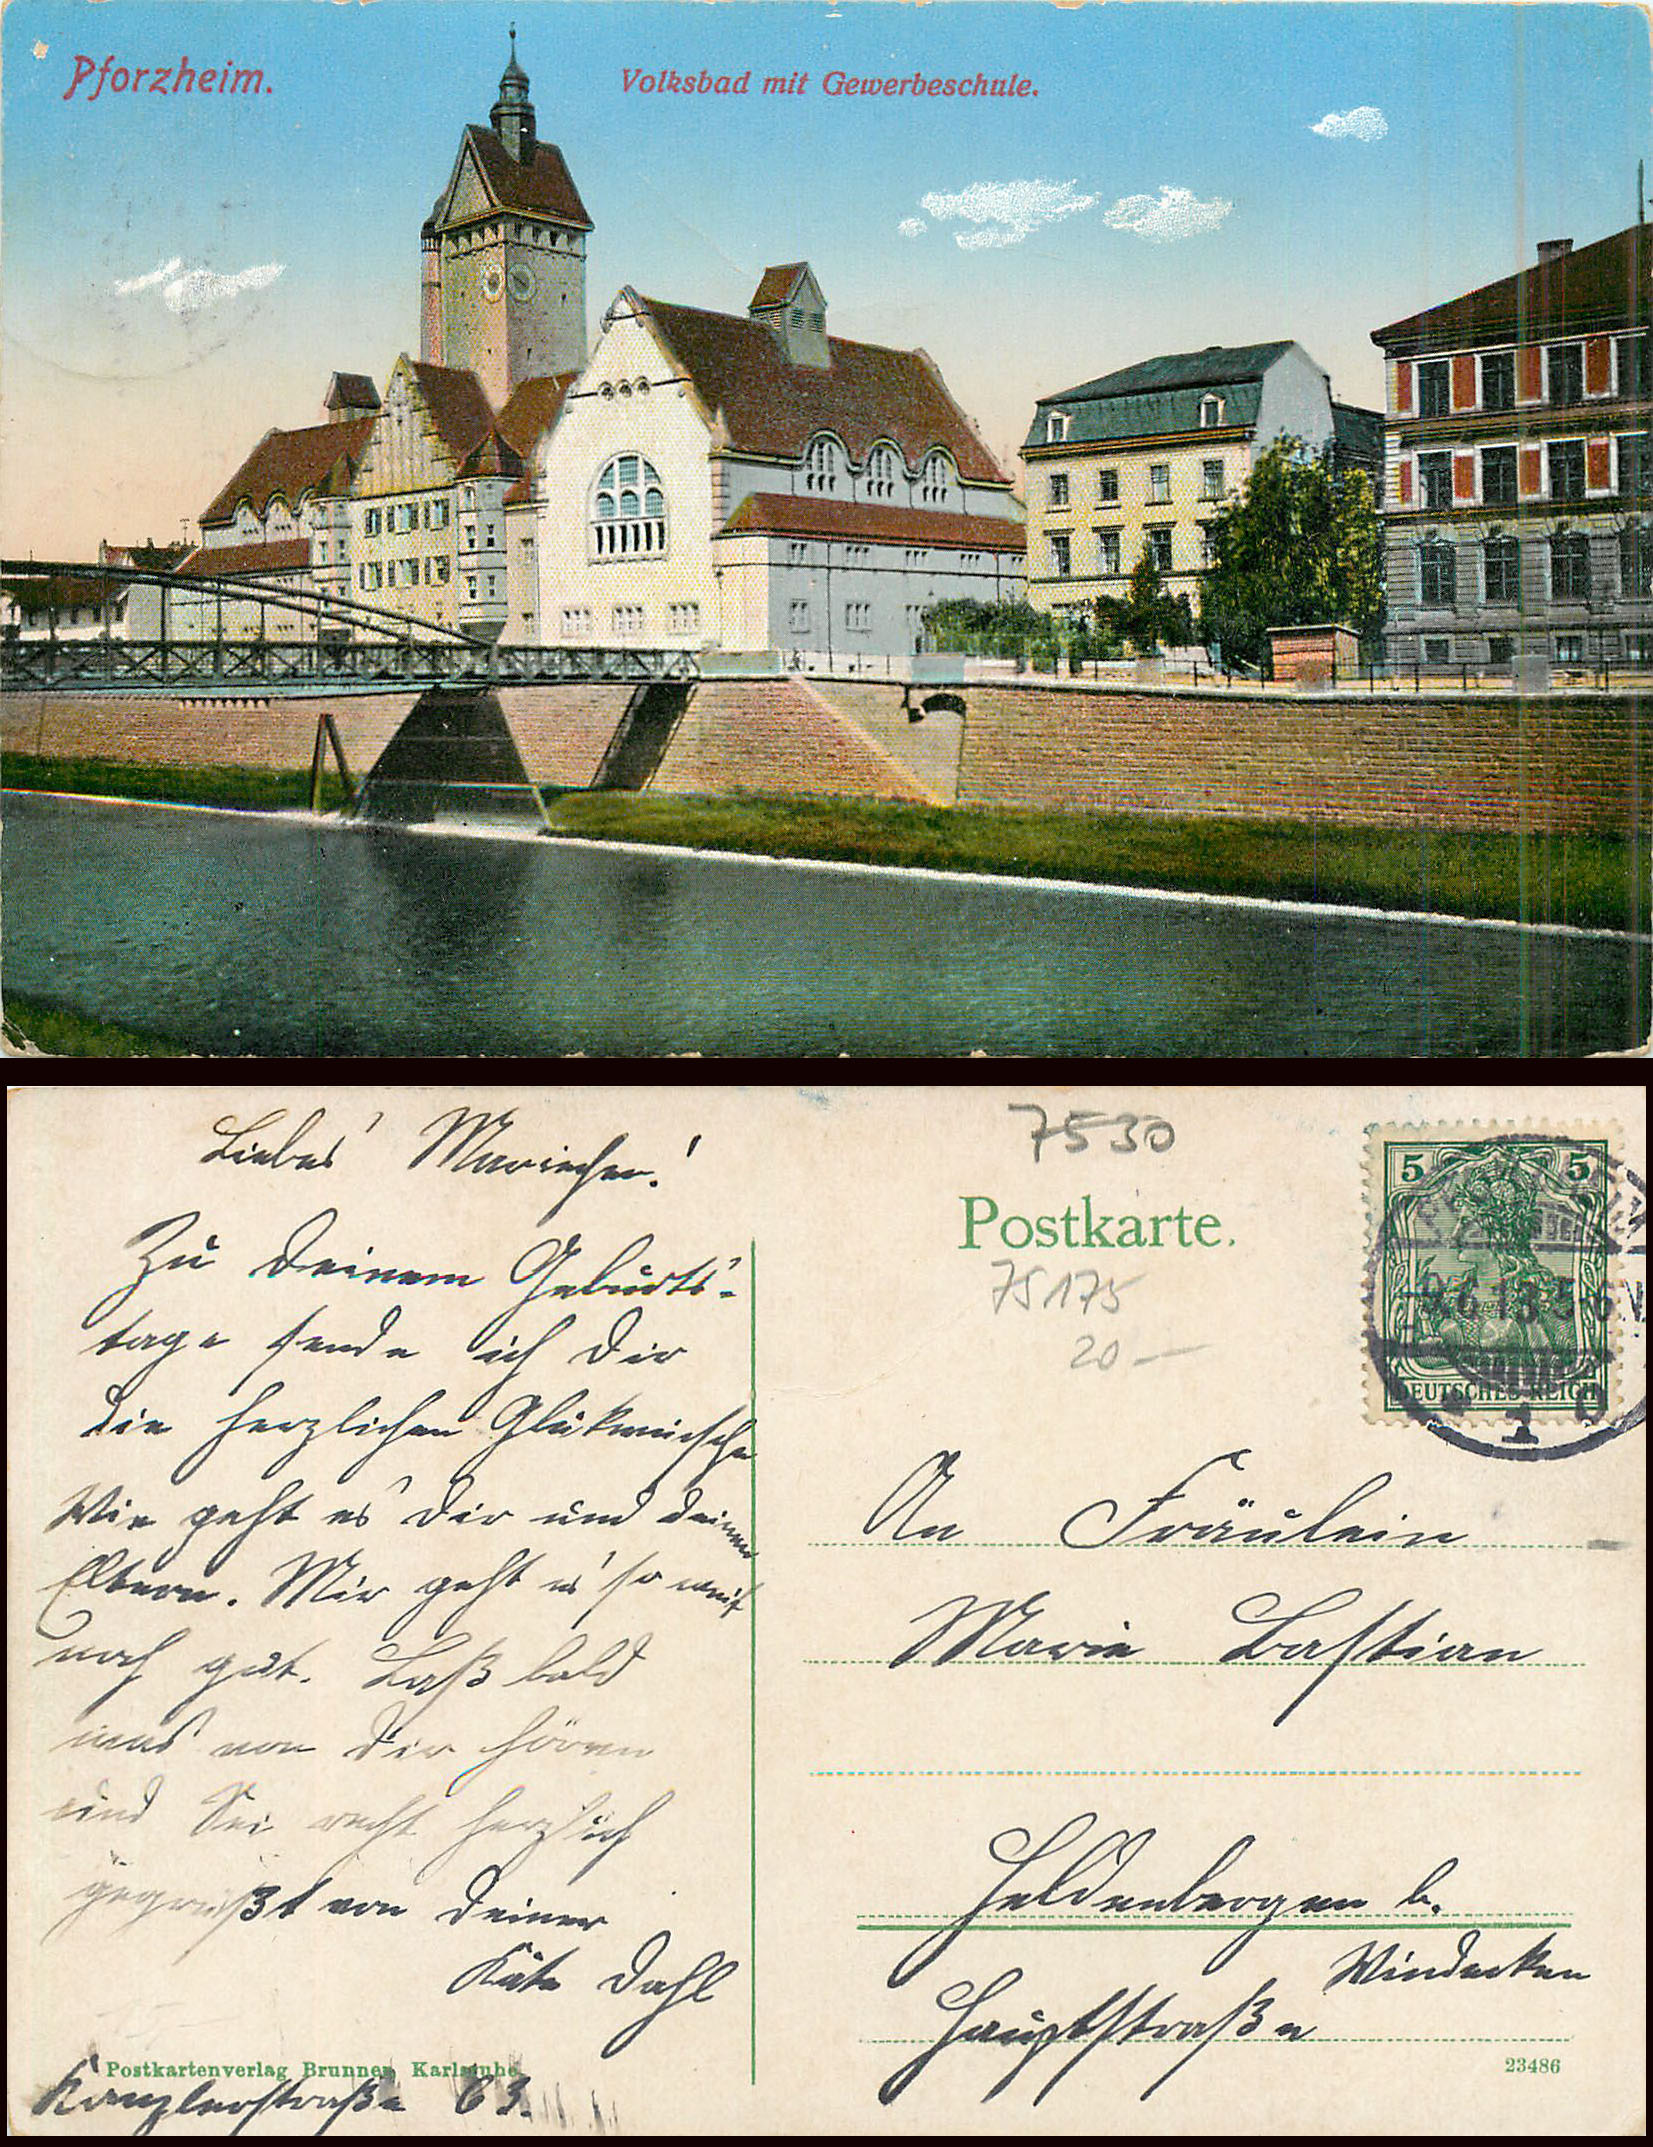 Pforzheim.
Volksbad mit Gewerbeschule.
Liebes Mariechen!
Zu Deinem Geburts-
tage sende ich Dir
die herzlichen Glükwünsche
Wie geht es Dir und Deinen
Eltern. Mir geht es so weit
noch gut. Laß bald
was von Dir hören
und Sei recht herzlich
gegrüßt von Deiner
Käte Dahl
Postkartenverlag Brunner, Karlsruhe.
Kanzlerstraße 63.
7530
Postkarte.
75175
20 —
5 5
9.6.13.5-6 N.
DEUTSCHES REICH
1
An Fräulein
Marie Bastian
Heldenbergen b.
Windecken
Hauptstraße
23486